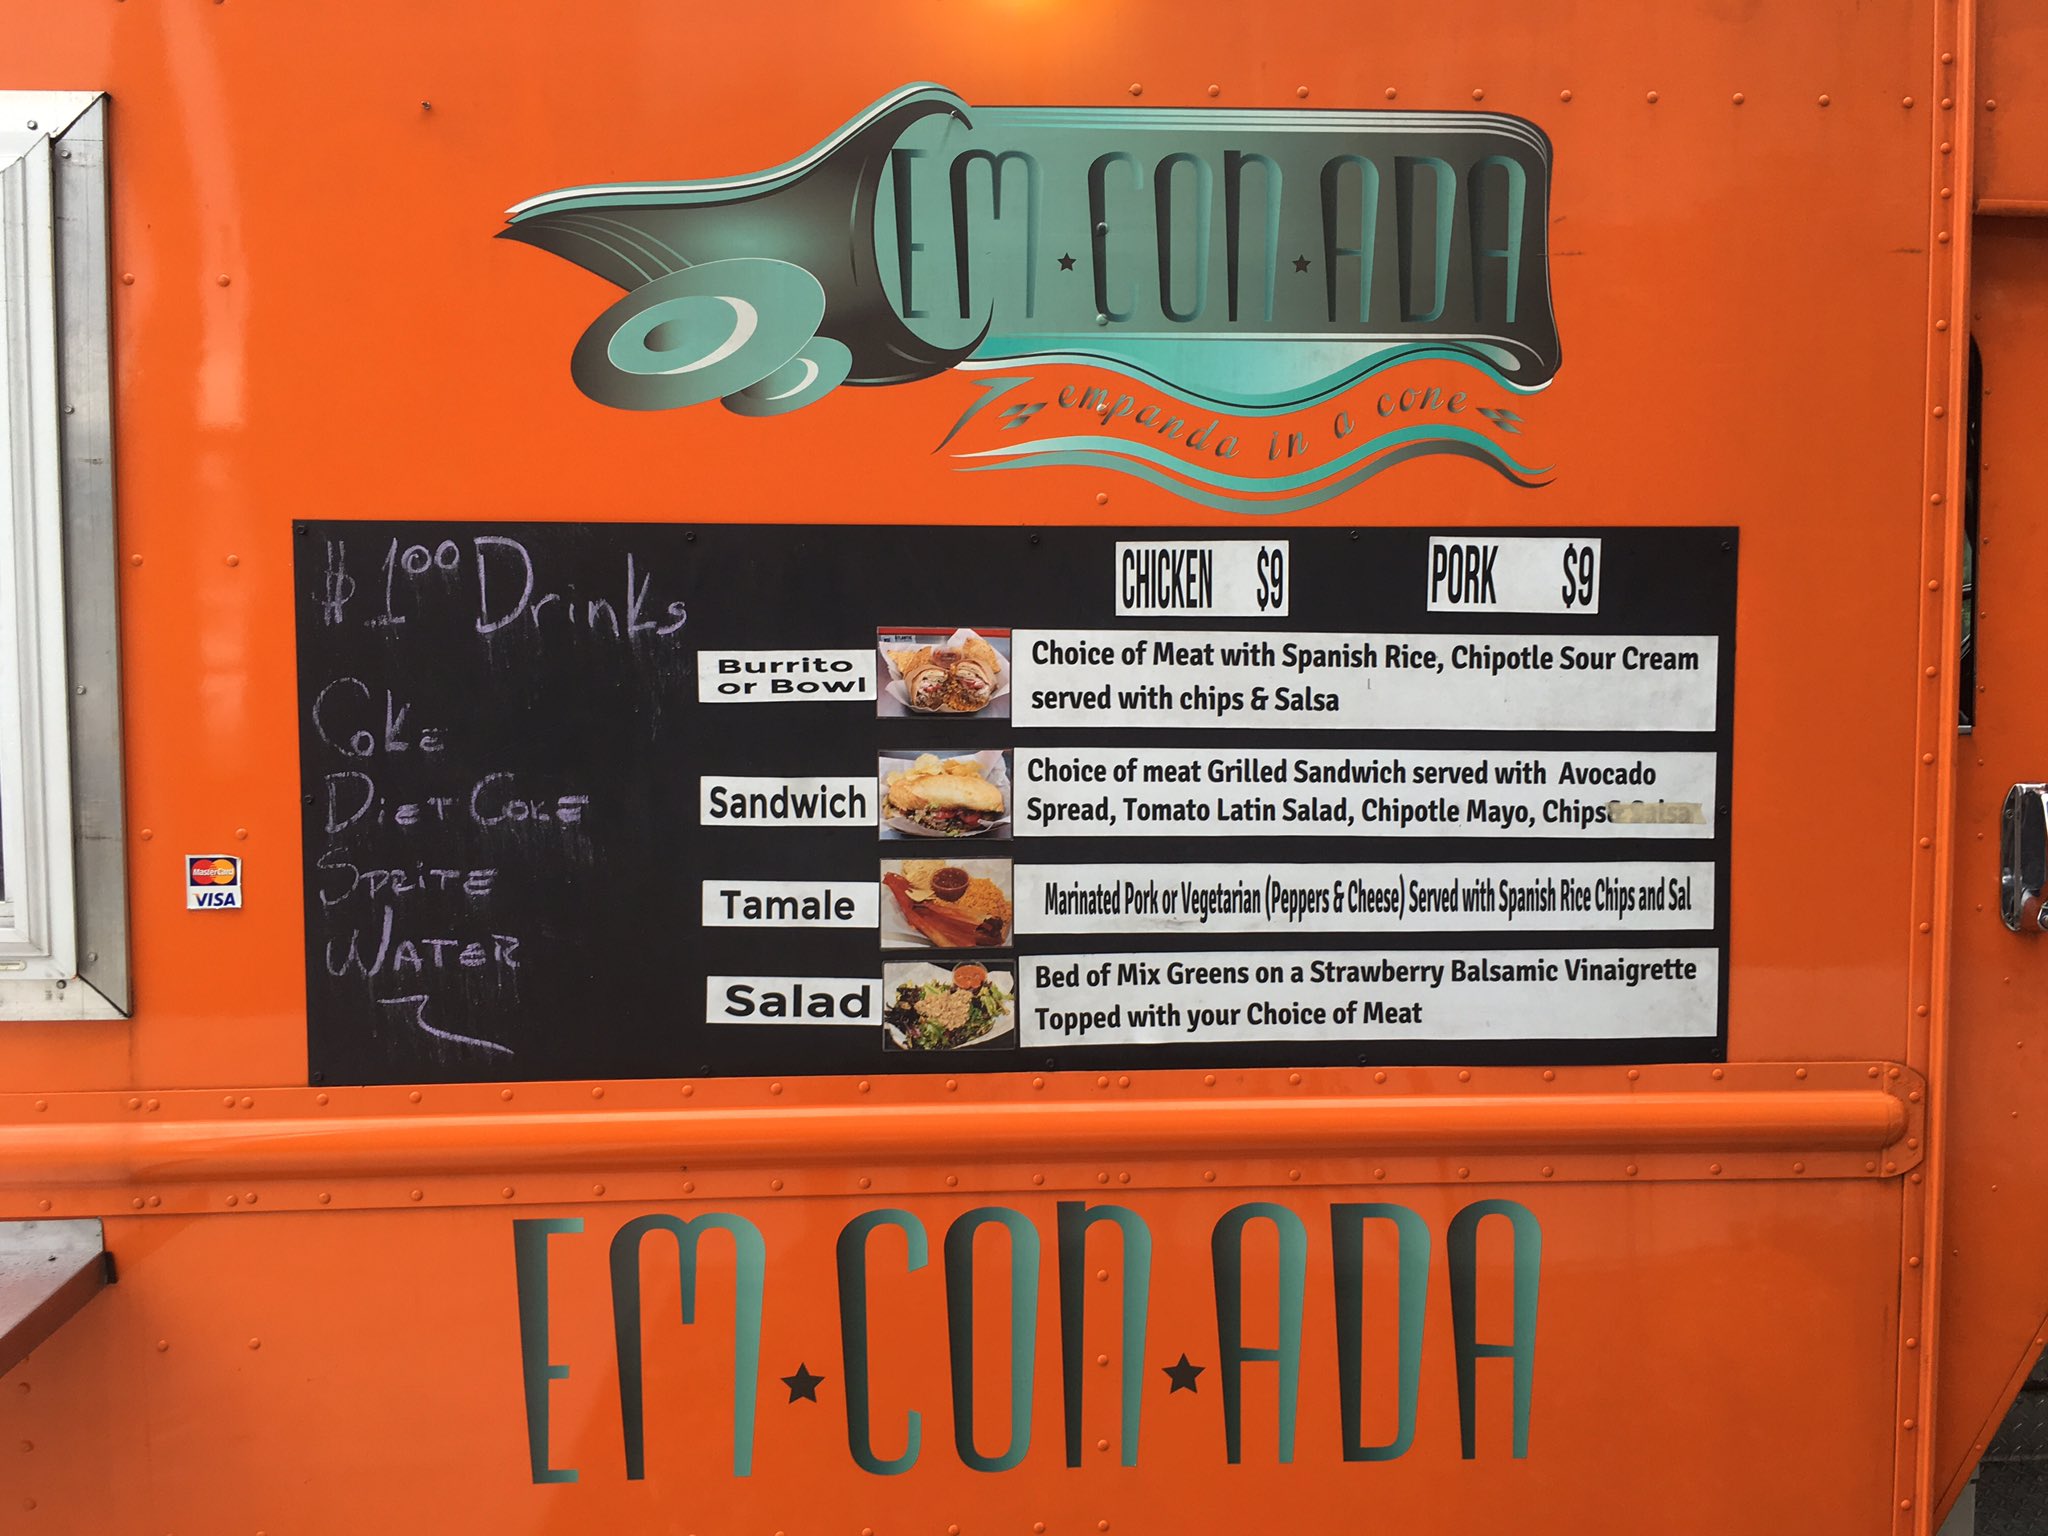 EM★CON★ADA
empanda in a cone
$1.00 Drinks
Coke
Diet Coke
Sprite
Water
CHICKEN $9
PORK $9
Burrito
or Bowl
Choice of Meat with Spanish Rice, Chipotle Sour Cream
served with chips & Salsa
Sandwich
Choice of meat Grilled Sandwich served with Avocado
Spread, Tomato Latin Salad, Chipotle Mayo, Chips& Salsa
Tamale
Marinated Pork or Vegetarian (Peppers & Cheese) Served with Spanish Rice Chips and Sal
Salad
Bed of Mix Greens on a Strawberry Balsamic Vinaigrette
Topped with your Choice of Meat
MasterCard
VISA
EM★CON★ADA